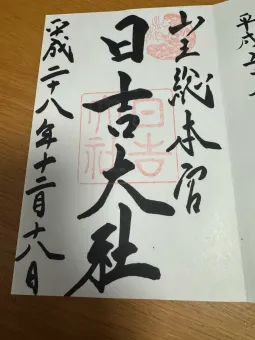 山王総本宮
日吉大社
平成二十八年十二月十八日
日吉大社
平成